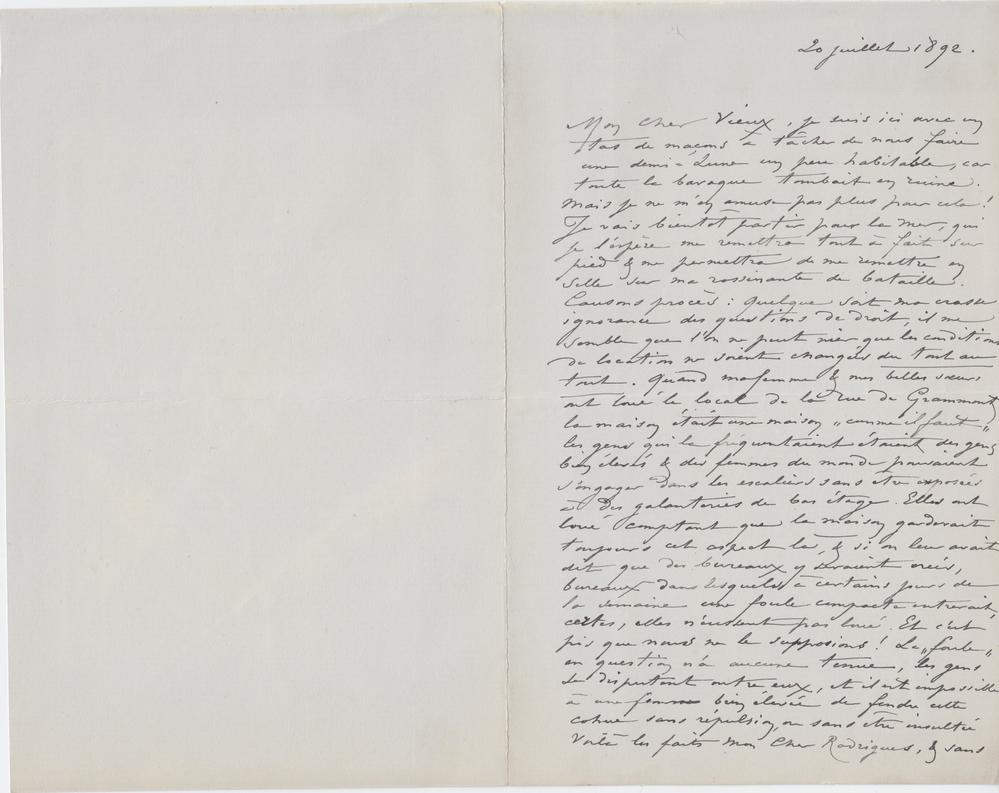 20 juillet 1892.
Mon Cher Vieux, je suis ici avec un
tas de maçons à tâcher de nous faire
une demi-Lune un peu habitable, car
toute la baraque tombait en ruine.
Mais je ne m'en amuse pas plus pour cela !
Je vais bientôt partir pour la mer, qui
je l'espère me remettra tout à fait sur
pied & me permettra de me remettre en
selle sur ma rossinante de bataille.
Causons procès : Quelque soit ma crasse
ignorance des questions de droit, il me
semble que l'on ne peut nier que les conditions
de location ne soient changées du tout au
tout. Quand ma femme & mes belles sœurs
ont loué le local de la rue de Grammont,
la maison était une maison „comme il faut"
les gens qui la fréquentaient étaient des gens
bien élevés & des femmes du monde pouvaient
s'engager dans les escaliers sans être exposées
à des galanteries de bas étage. Elles ont
loué comptant que la maison garderait
toujours cet aspect là, & si on leur avait
dit que des bureaux y seraient créés,
bureaux dans lesquels à certains jours de
la semaine une foule compacte entrerait,
certes, elles n'eussent pas loué. Et c'est
pis que nous ne le supposions ! La „foule"
en question n'a aucune tenue, les gens
se disputent entre eux, et il est impossible
à une femme bien élevée de fendre cette
cohue sans répulsion, ou sans être insultée
Voilà les faits mon Cher Rodrigues, & sans